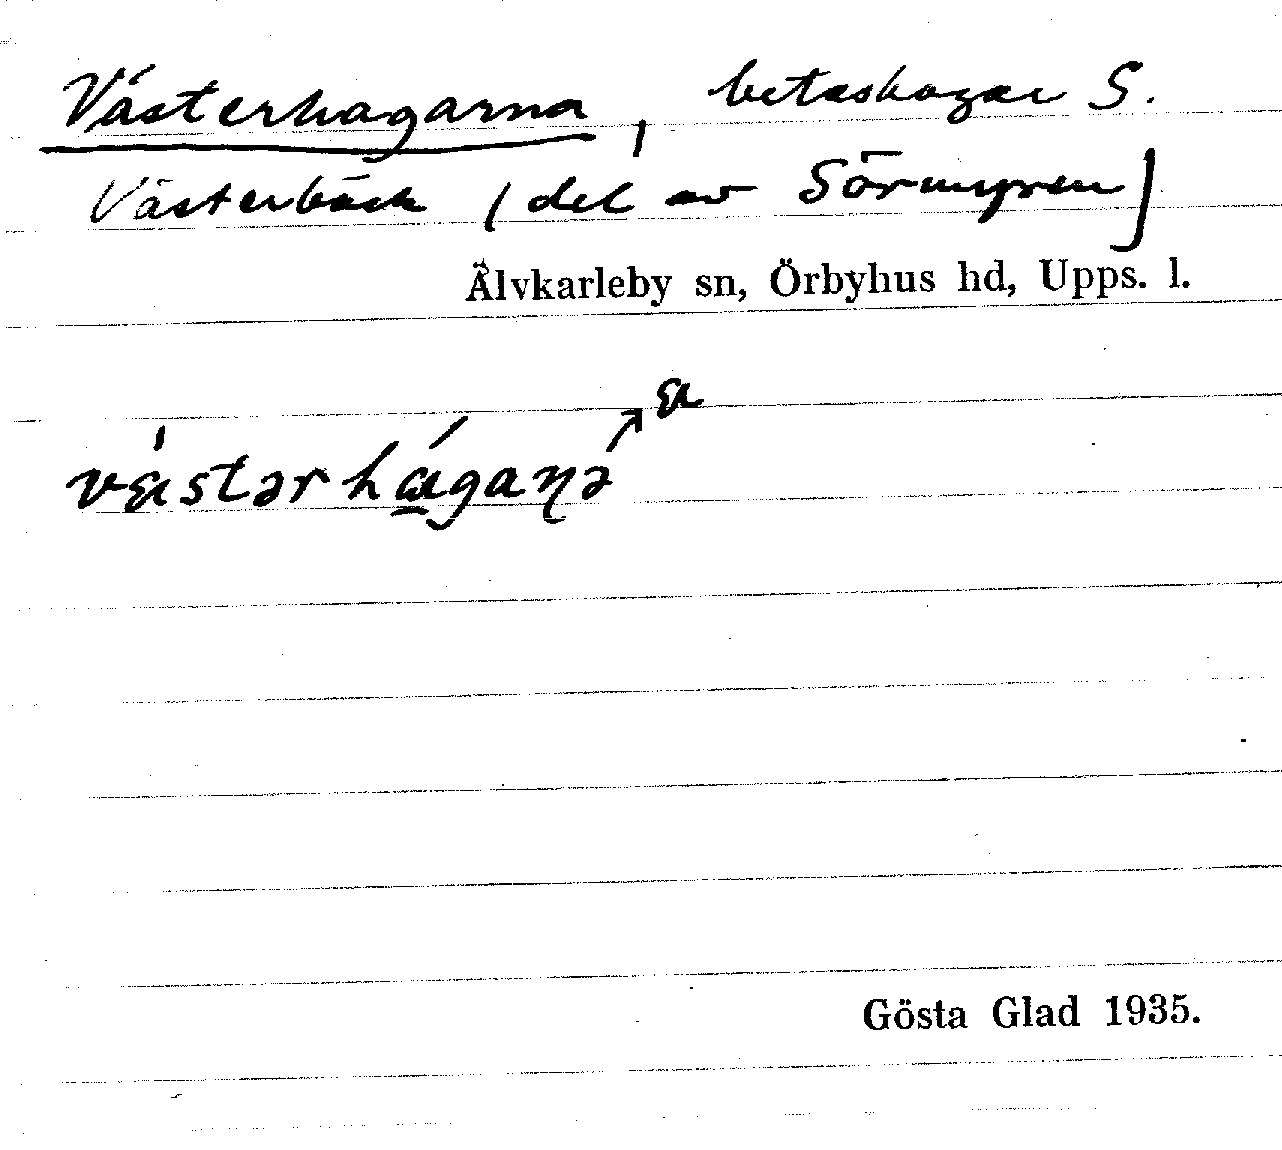 Västerhagarna, beteshagar S.
Västerbäck (del av Sörmyren)
Älvkarleby sn, Örbyhus hd, Upps. l.
væ̀stərhɑ́gaɳə ↗ æ
Gösta Glad 1935.